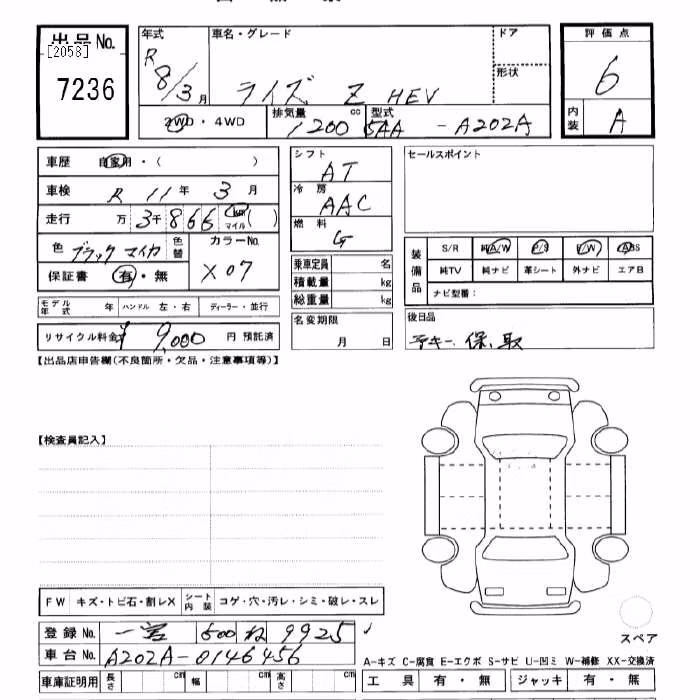 出品No.
[2058]
7236
年式
R 8/3月
車名・グレード
ライズ Z HEV
ドア
形状
2WD・4WD
排気量 1200 cc
型式 5AA - A202A
評価点
6
内装
A
車歴 自家用・( )
車検 R 11年 3月
走行 万 3千 866 km マイル ( )
色 ブラックマイカ
色替
カラーNo.
X07
保証書 有・無
モデル年式 年 ハンドル 左・右 ディーラー・並行
リサイクル料金 ¥9,000 円 預託済
シフト
AT
冷房
AAC
燃料
G
乗車定員 名
積載量 kg
総重量 kg
名変期限
月 日
セールスポイント
装備品
S/R 純A/W P/S P/W ABS
純TV 純ナビ 革シート 外ナビ エアB
ナビ型番:
後日品
保、取
【出品店申告欄(不良箇所・欠品・注意事項等)】
【検査員記入】
FW キズ・トビ石・割レX シート内装 コゲ・穴・汚レ・シミ・破レ・スレ
登録No. 一宮 500 ね 9925
車台No. A202A-0146456
車庫証明用 長さ cm 幅 cm 高さ cm
スペア
A-キズ C-腐食 E-エクボ S-サビ U-凹ミ W-補修 XX-交換済
工具 有・無 ジャッキ 有・無